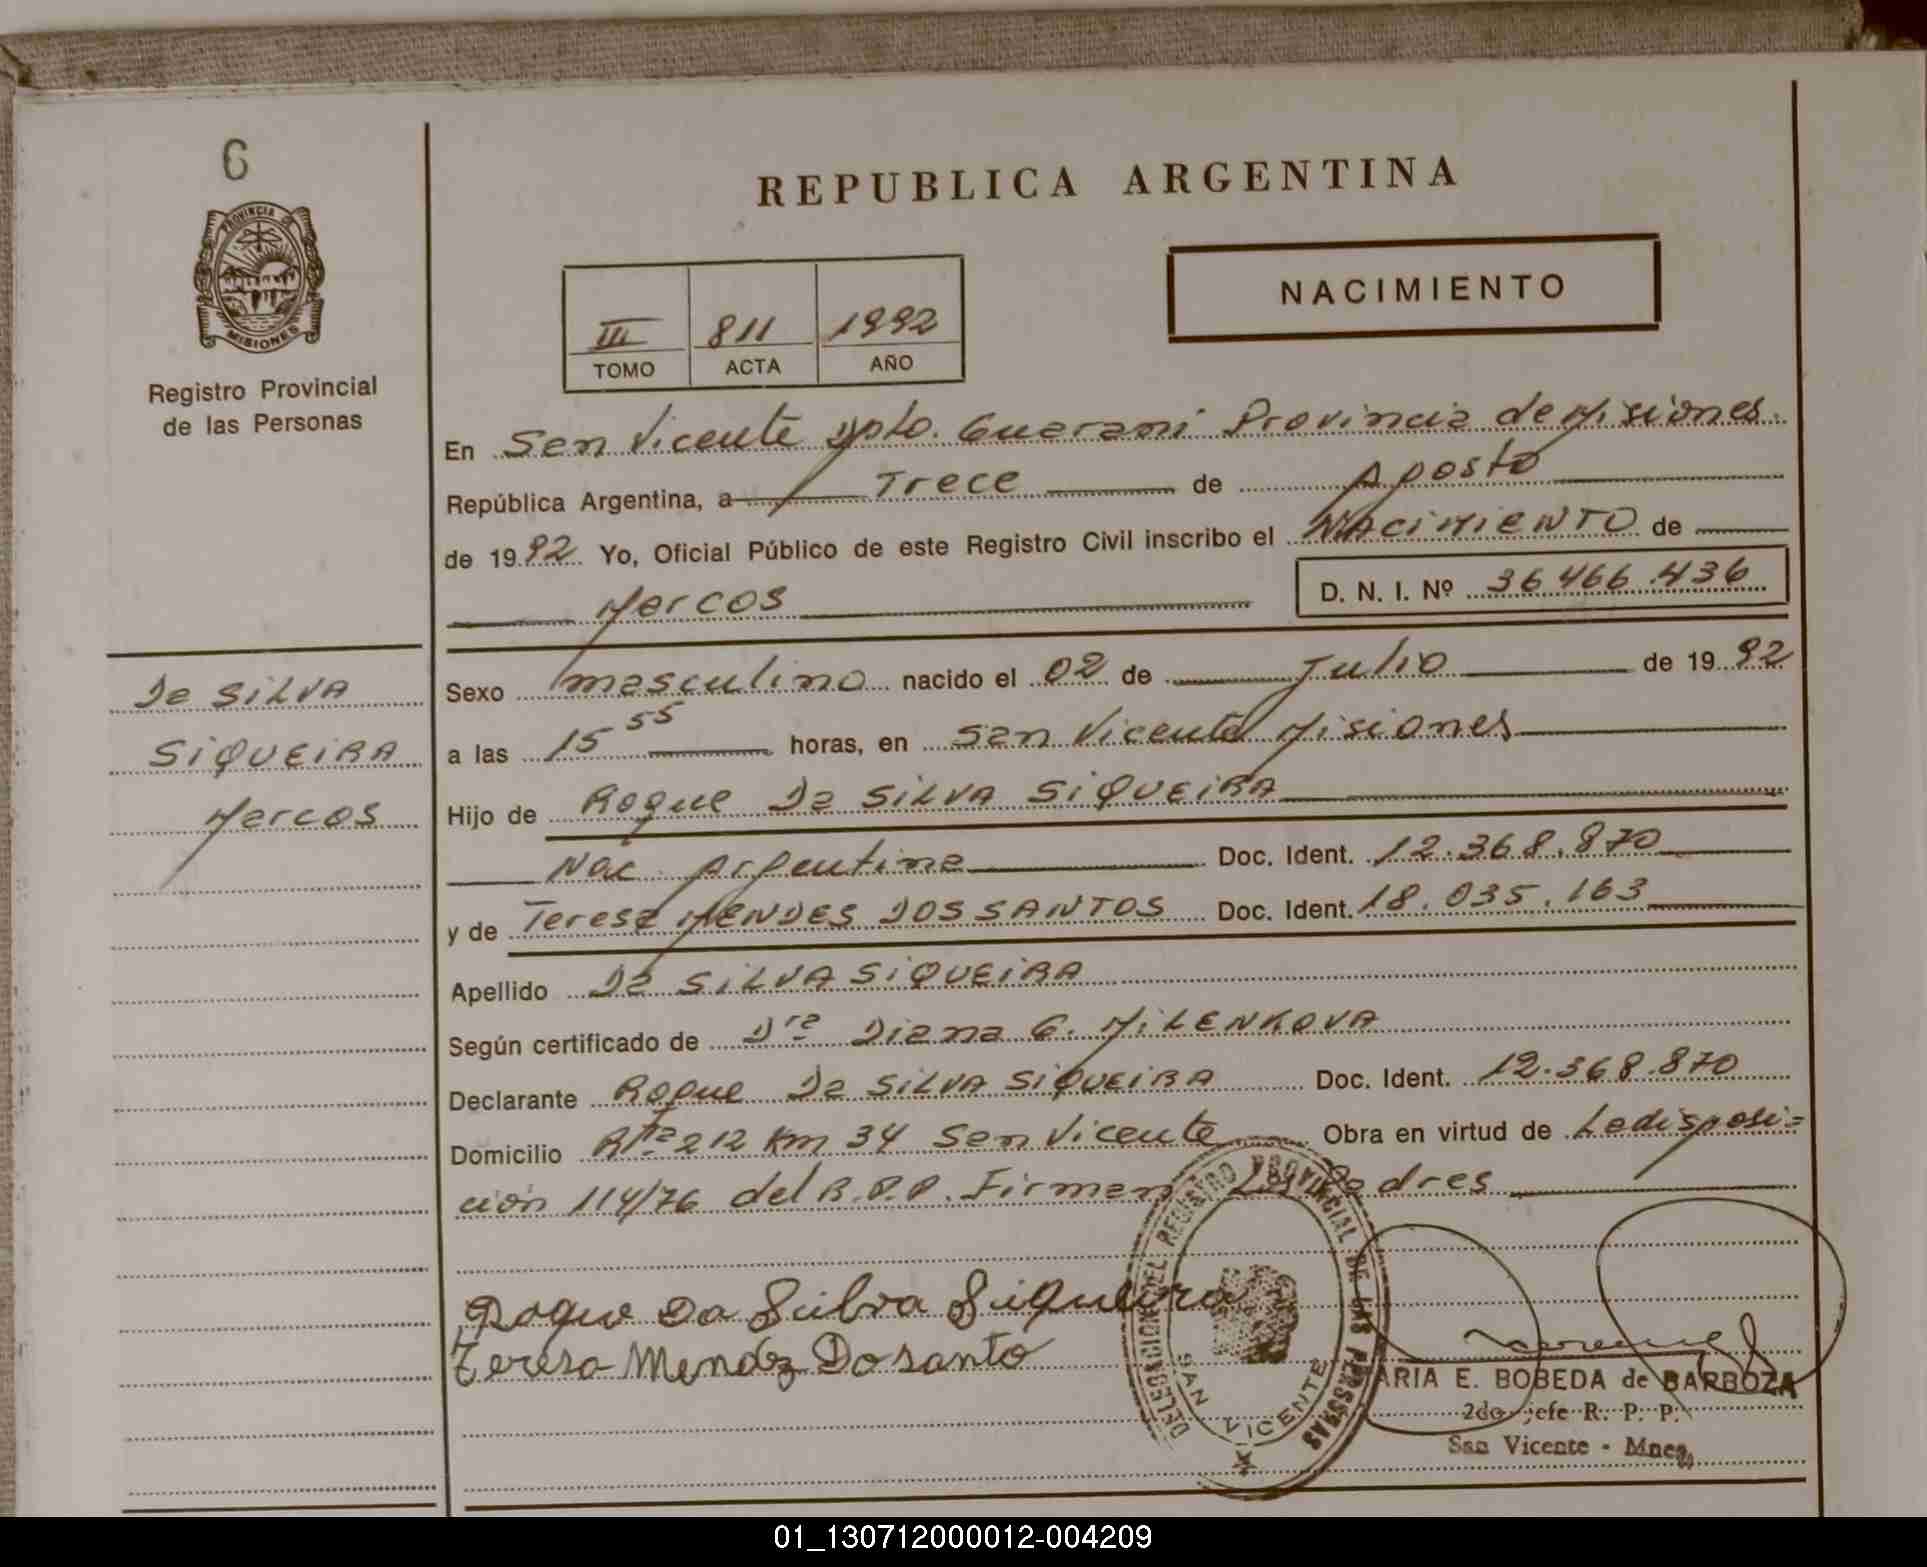 6
PROVINCIA DE
MISIONES
Registro Provincial
de las Personas
REPUBLICA ARGENTINA
NACIMIENTO
III 811 1992
TOMO ACTA AÑO
En San Vicente Dpto. Guarani Provincia de Misiones.
República Argentina, a Trece de Agosto
de 1992 Yo, Oficial Público de este Registro Civil inscribo el NACIMIENTO de
Marcos D. N. I. Nº 36466.436
De SILVA
SIQUEIRA
Marcos
Sexo masculino nacido el 02 de Julio de 1992
a las 15 55 horas, en San Vicente Misiones
Hijo de Roque Da SILVA SIQUEIRA
Nac. Argentina Doc. Ident. 12.368.870
y de Teresa MENDES DOS SANTOS Doc. Ident. 18.035.163
Apellido Da SILVA SIQUEIRA
Según certificado de Dra Diana G. MILENKOVA
Declarante Roque Da SILVA SIQUEIRA Doc. Ident. 12.368.870
Domicilio Rta 212 Km 34 San Vicente Obra en virtud de La disposi=
ción 114/76 del R.P.P. Firman Los Padres
Roque Da Silva Siqueira
Teresa Mendez Dosanto
DELEGACION DEL REGISTRO PROVINCIAL DE LAS PERSONAS
SAN VICENTE
ARIA E. BOBEDA de BARBOZA
2do jefe R. P. P.
San Vicente - Mnes.
01_130712000012-004209